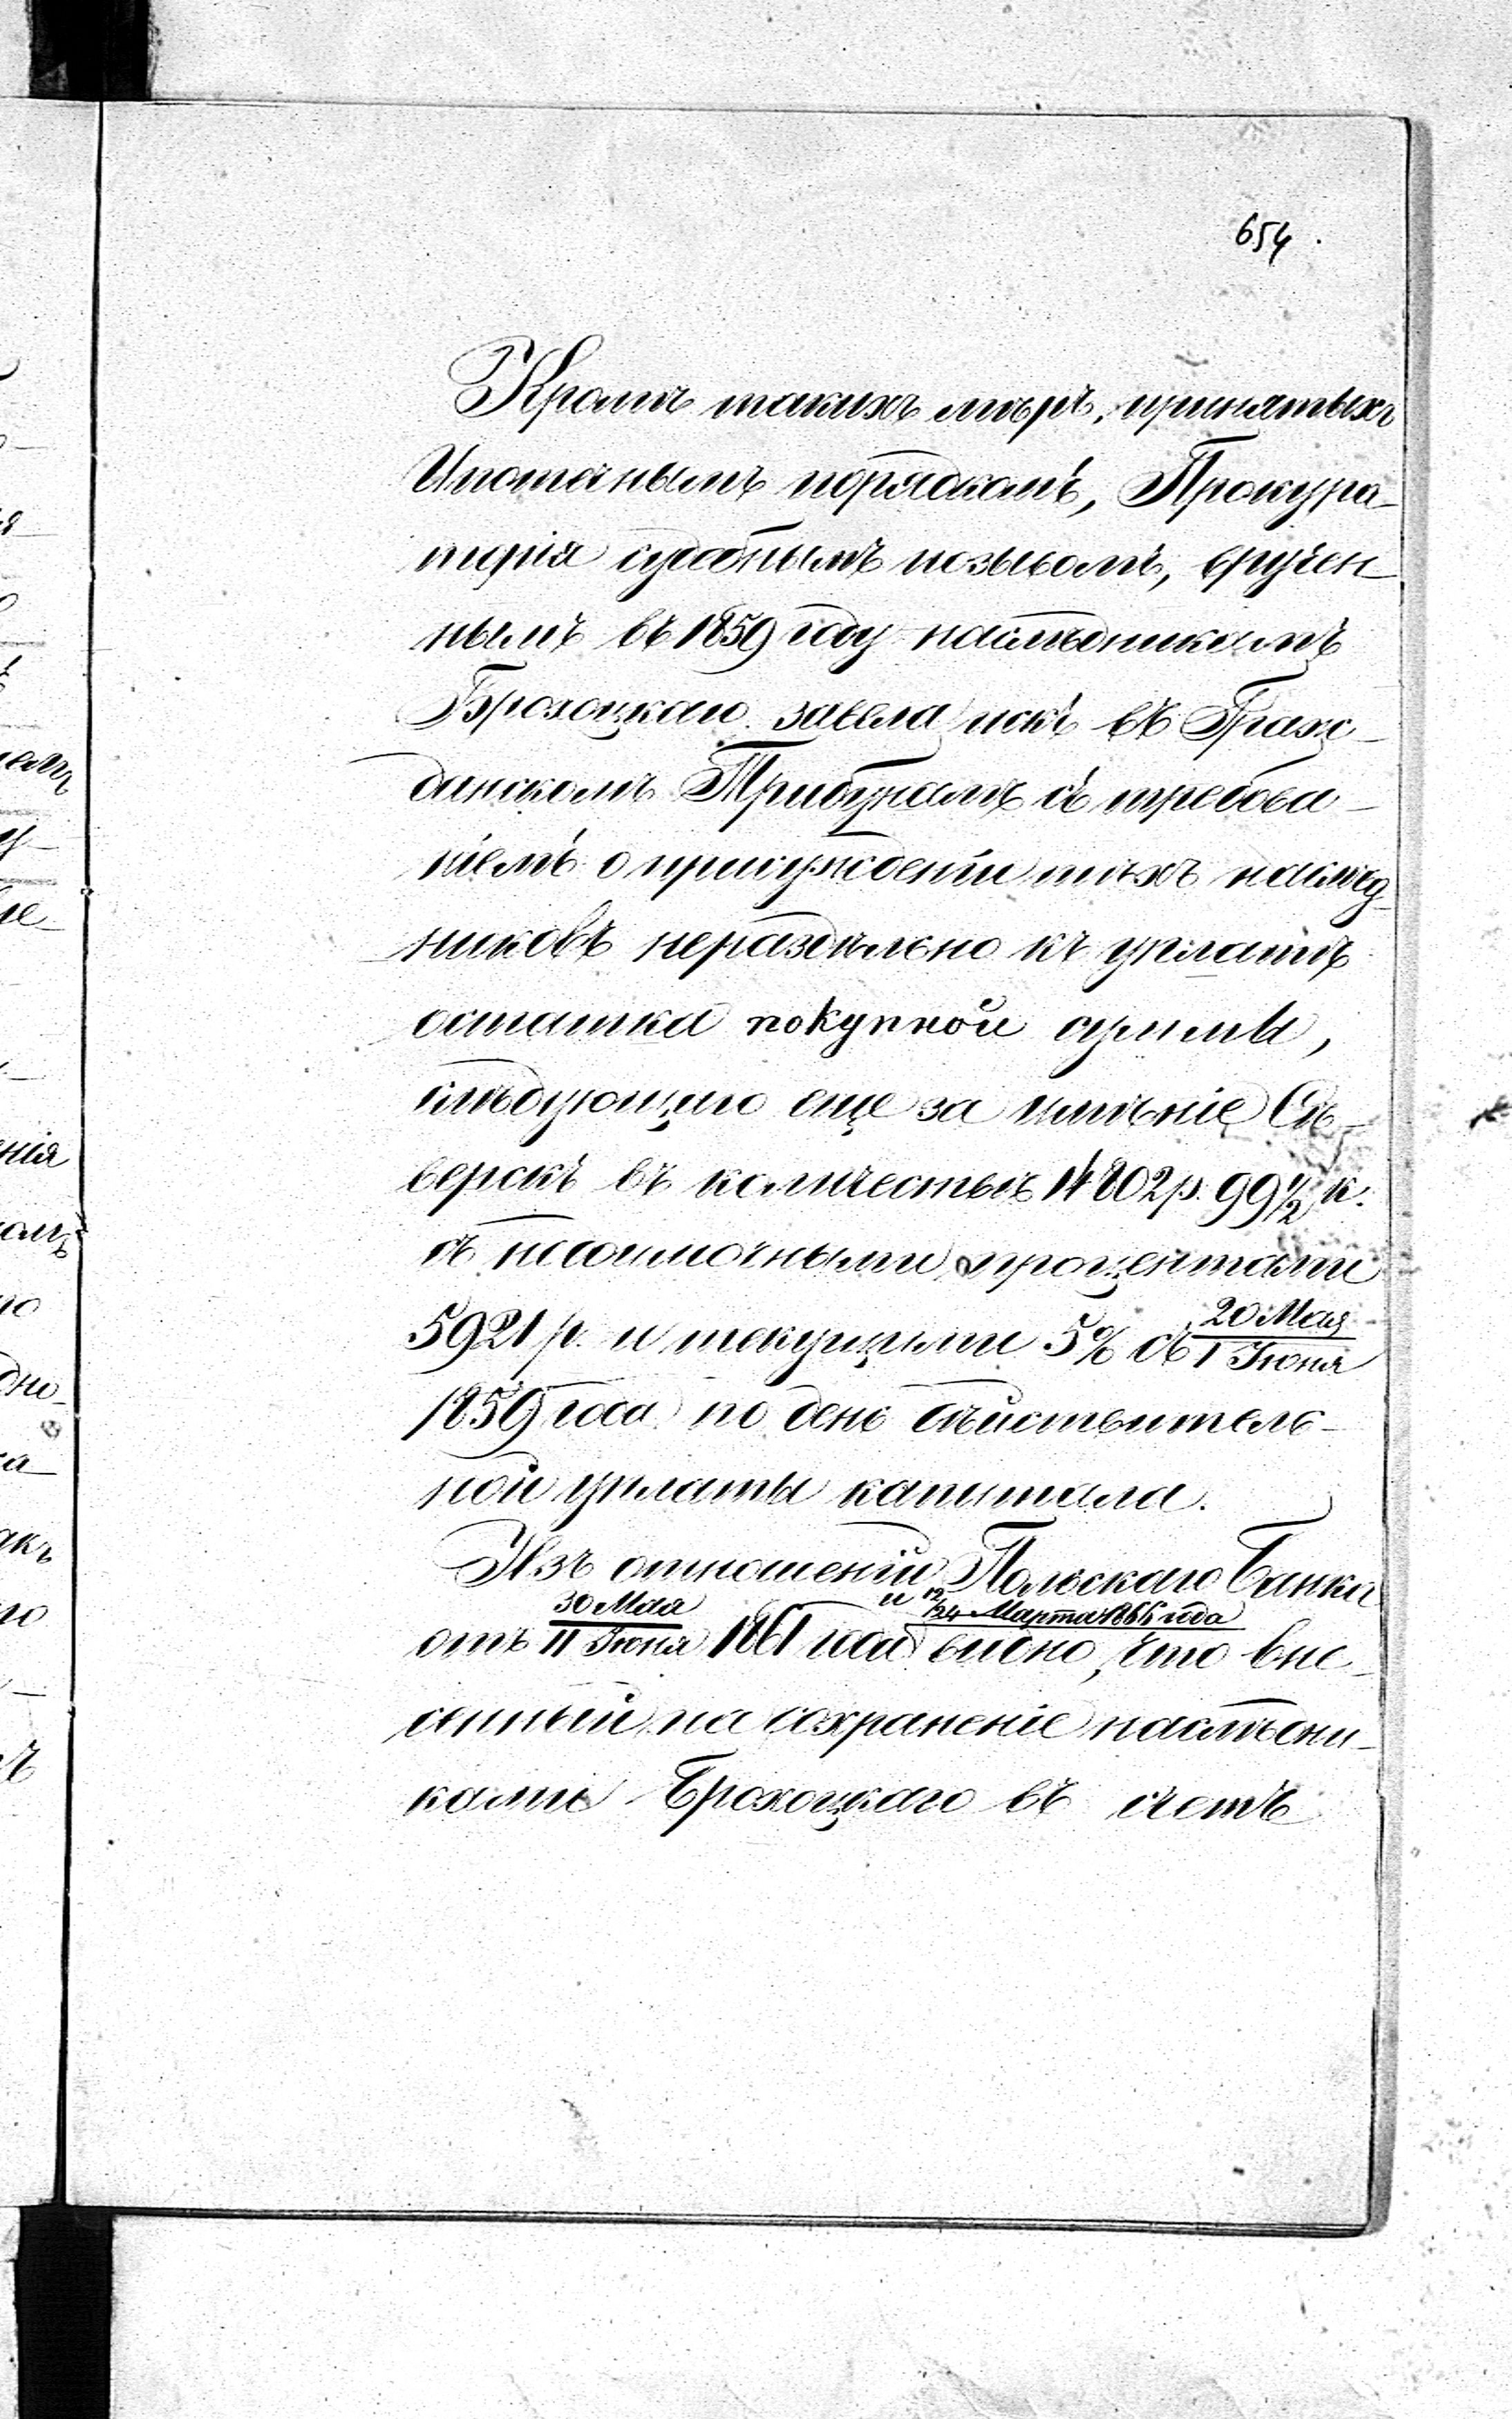 654.
Кромѣ такихъ мѣръ, принятыхъ
Ипотечнымъ порядкомъ, Прокура-
торія судебнымъ позывомъ, вручен-
нымъ въ 1859 году наслѣдникамъ
Брохоцкаго завела искъ въ Граж-
данскомъ Трибуналѣ съ требова-
ніемъ о присужденіи тѣхъ наслѣд-
никовъ нераздѣльно къ уплатѣ
остатка покупной суммы,
слѣдующаго еще за имѣніе Сѣ-
верскъ въ количествѣ 14802 р. 99 1/2 к.
съ недоимочными процентами
5921 р. и текущими 5% съ 20 Мая / 1 Іюня
1859 года по день дѣйствитель-
ной уплаты капитала.
Изъ отношеній Польскаго Банка
отъ 30 Мая / 11 Іюня 1861 года и 12/24 Марта 1866 года видно, что вне-
сенный на сохраненіе наслѣдни-
ками Брохоцкаго въ счетъ